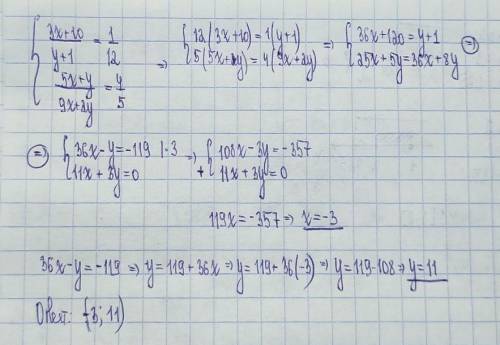 { (3x+10)/(y+1) = 1/12 ; (5x+y)/(9x+2y) = 4/5 => { 12(3x+10)=1(y+1) ; 5(5x+y)=4(9x+2y) => { 36x+120=y+1 ; 25x+5y=36x+8y =>
=> { 36x-y=-119 |·3 ; 11x+3y=0 => + { 108x-3y=-357 ; 11x+3y=0
119x=-357 => x=-3
36x-y=-119 => y=119+36x => y=119+36(-3) => y=119-108 => y=11
Ответ: (-3; 11)